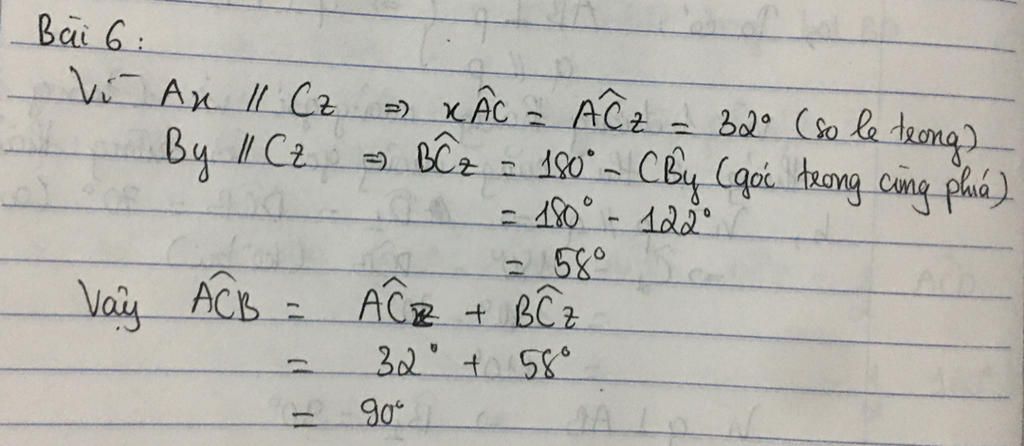 Bài 6:
Vì Ax // Cz => xÂC = AĈz = 32° (so le trong)
By // Cz => BĈz = 180° - CB̂y (góc trong cùng phía)
= 180° - 122°
= 58°
Vậy AĈB = AĈz + BĈz
= 32° + 58°
= 90°